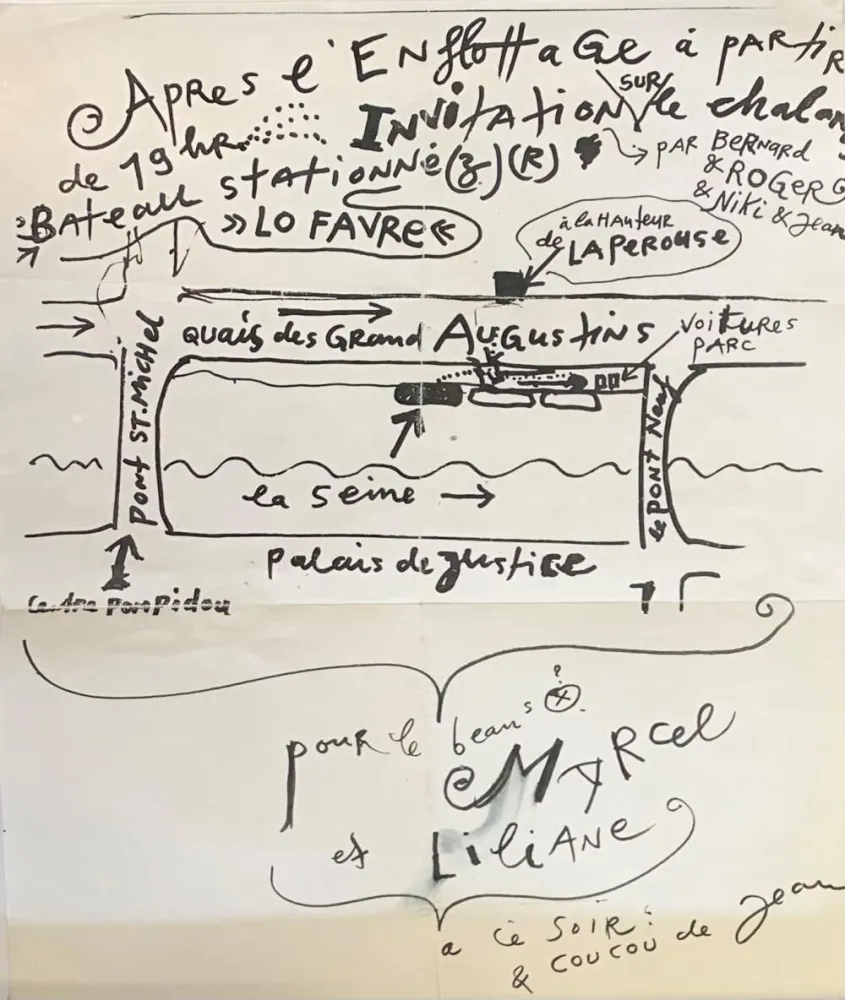 Apres l'Enflottage à partir
de 19 hr. Invitation sur le chalan
Bateau stationné(z)(r) par Bernard
& Roger
& Niki & Jean
»Lo Favre«
à la hauteur
de Laperouse
Quais des Grand Augustins
Voitures
parc
Pont St. Michel
le Pont Neuf
la Seine
Palais de Justice
Centre Pompidou
?
pour le beans
Marcel
et Liliane
a ce soir!
& coucou de Jean